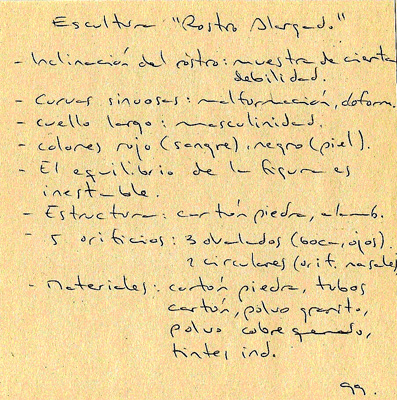 Escultura "Rostro Alargado."
- Inclinación del rostro: muestra de cierta
debilidad.
- Curvas sinuosas: malformación, deform.
- cuello largo: masculinidad.
- colores rojo (sangre), negro (piel).
- El equilibrio de la figura es
inestable.
- Estructura: cartón piedra, alamb.
- 5 orificios: 3 ovalados (boca, ojos).
2 circulares (orif. nasales)
- Materiales: cartón piedra, tubos
cartón, polvo granito,
polvo cobre quemado,
tintes ind.
99.